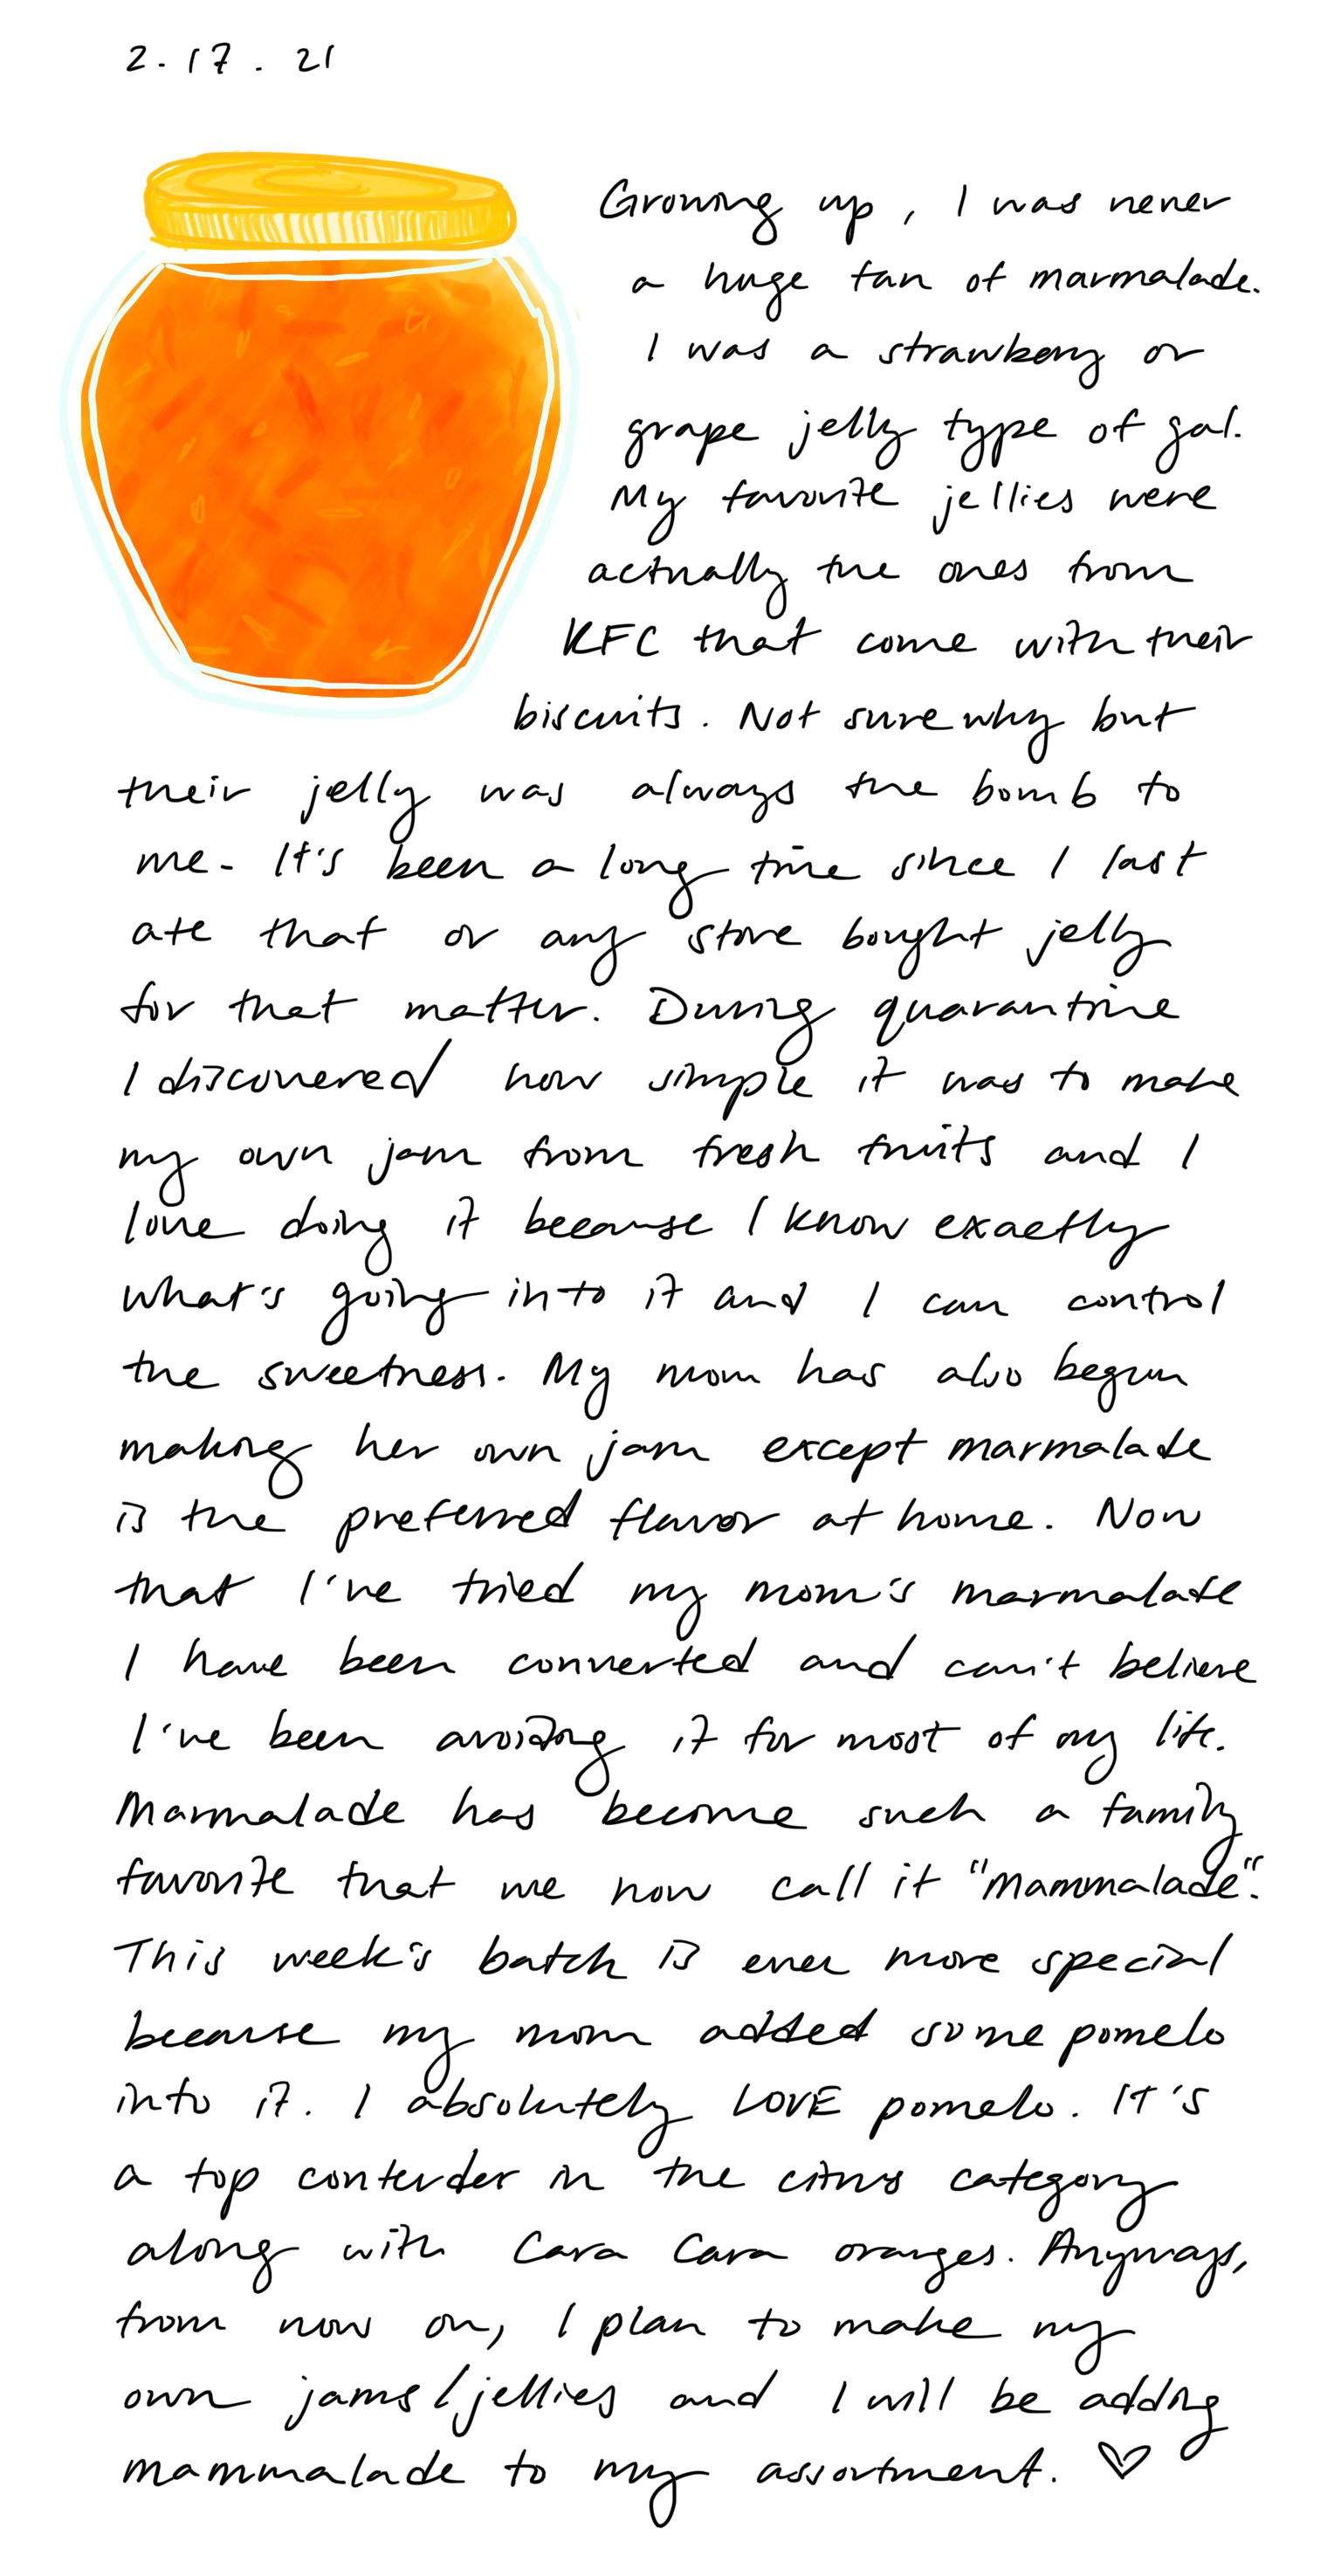 2.17.21
Growing up, I was never
a huge fan of marmalade.
I was a strawberry or
grape jelly type of gal.
My favorite jellies were
actually the ones from
KFC that come with their
biscuits. Not sure why but
their jelly was always the bomb to
me. It's been a long time since I last
ate that or any store bought jelly
for that matter. During quarantine
I discovered how simple it was to make
my own jam from fresh fruits and I
love doing it because I know exactly
what's going into it and I can control
the sweetness. My mom has also begun
making her own jam except marmalade
is the preferred flavor at home. Now
that I've tried my mom's marmalade
I have been converted and can't believe
I've been avoiding it for most of my life.
Marmalade has become such a family
favorite that we now call it "Mammalade".
This week's batch is even more special
because my mom added some pomelo
into it. I absolutely LOVE pomelo. It's
a top contender in the citrus category
along with Cara Cara oranges. Anyways,
from now on, I plan to make my
own jams/jellies and I will be adding
mammalade to my assortment. ♡